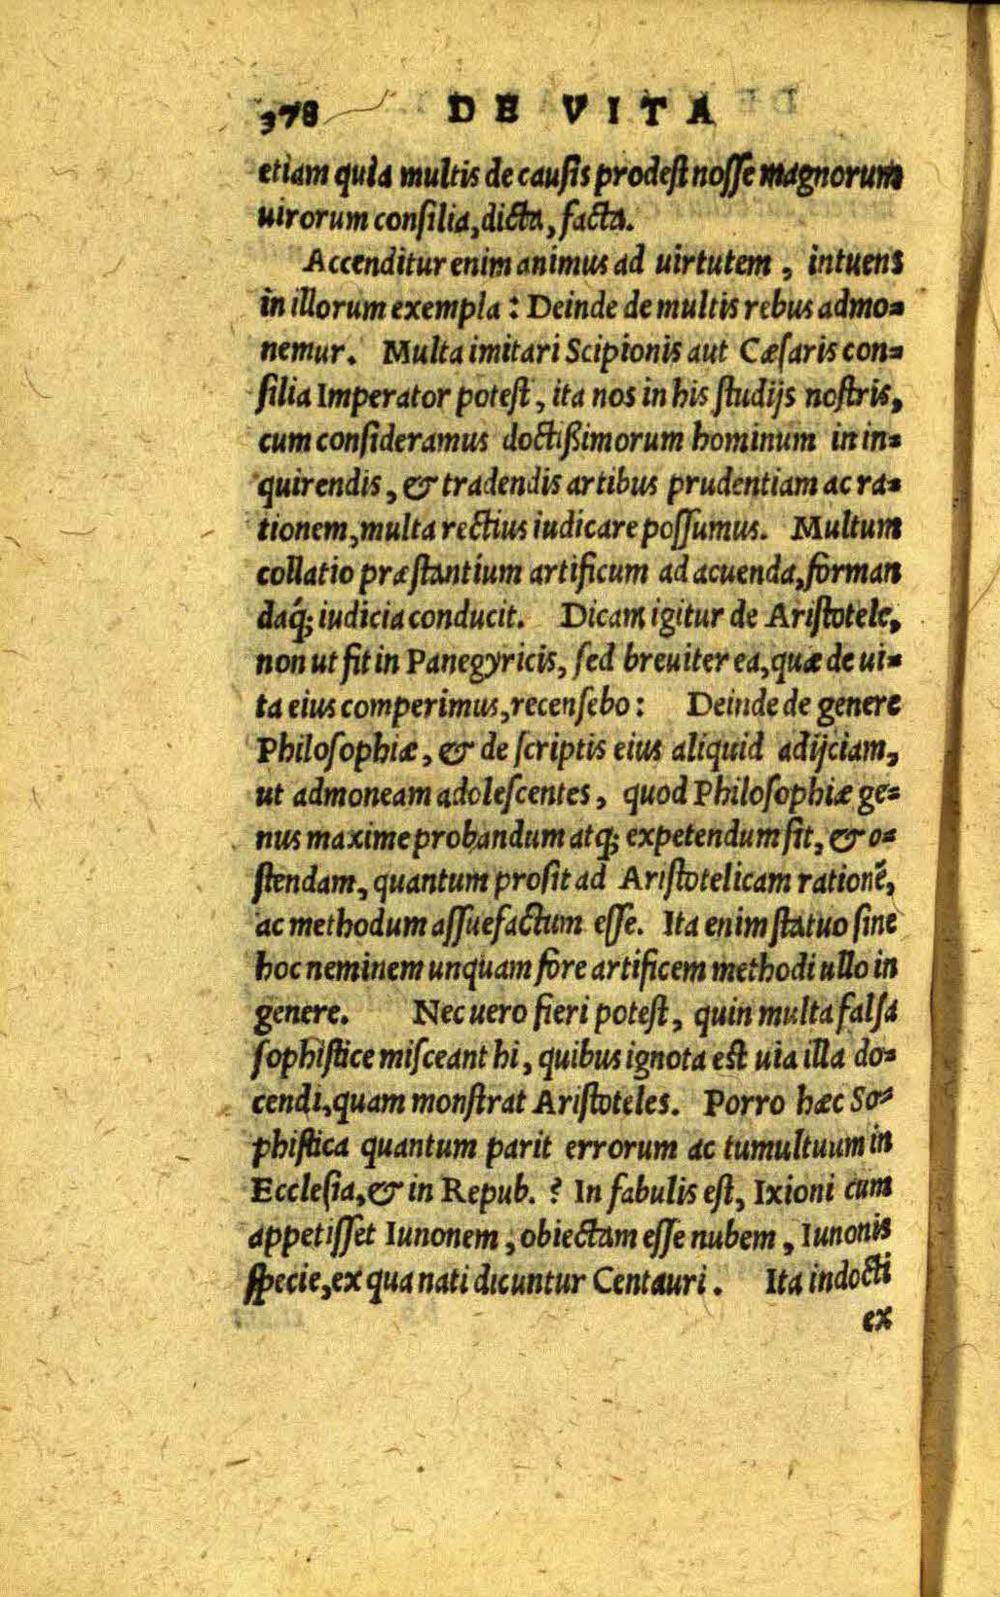 378 DE VITA
etiam quia multis de causis prodest nosse magnorum
uirorum consilia, dicta, facta.
Accenditur enim animus ad uirtutem, intuens
in illorum exempla: Deinde de multis rebus admo=
nemur. Multa imitari Scipionis aut Cæsaris con=
silia Imperator potest, ita nos in his studijs nostris,
cum consideramus doctißimorum hominum in in=
quirendis, & tradendis artibus prudentiam ac ra=
tionem, multa rectius iudicare possumus. Multum
collatio præstantium artificum ad acuenda, forman
daq́; iudicia conducit. Dicam igitur de Aristotele,
non ut fit in Panegyricis, sed breuiter ea, quæ de ui=
ta eius comperimus, recensebo: Deinde de genere
Philosophiæ, & de scriptis eius aliquid adijciam,
ut admoneam adolescentes, quod Philosophiæ ge=
nus maxime probandum atq; expetendum sit, & o=
stendam, quantum prosit ad Aristotelicam rationẽ,
ac methodum assuefactum esse. Ita enim statuo sine
hoc neminem unquam fore artificem methodi ullo in
genere. Nec uero fieri potest, quin multa falsa
sophistice misceant hi, quibus ignota est uia illa do=
cendi, quam monstrat Aristoteles. Porro hæc So=
phistica quantum parit errorum ac tumultuum in
Ecclesia, & in Repub.? In fabulis est, Ixioni cum
appetisset Iunonem, obiectam esse nubem, Iunonis
specie, ex qua nati dicuntur Centauri. Ita indocti
ex